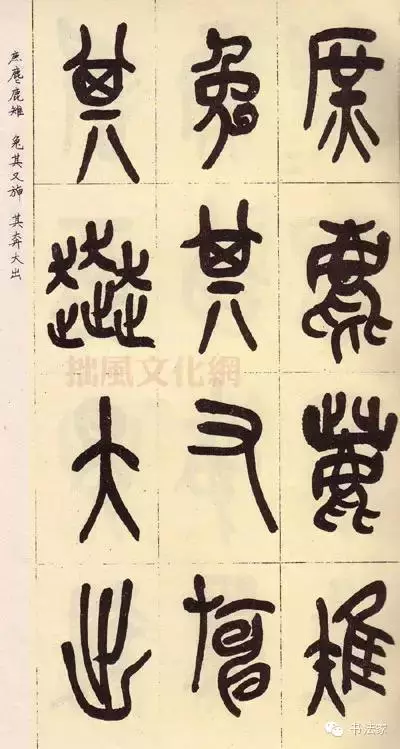 庶麀鹿雉
兔其又
其奔大出
庶麀鹿雉 兔其又 其奔大出
拙風文化網
书法家